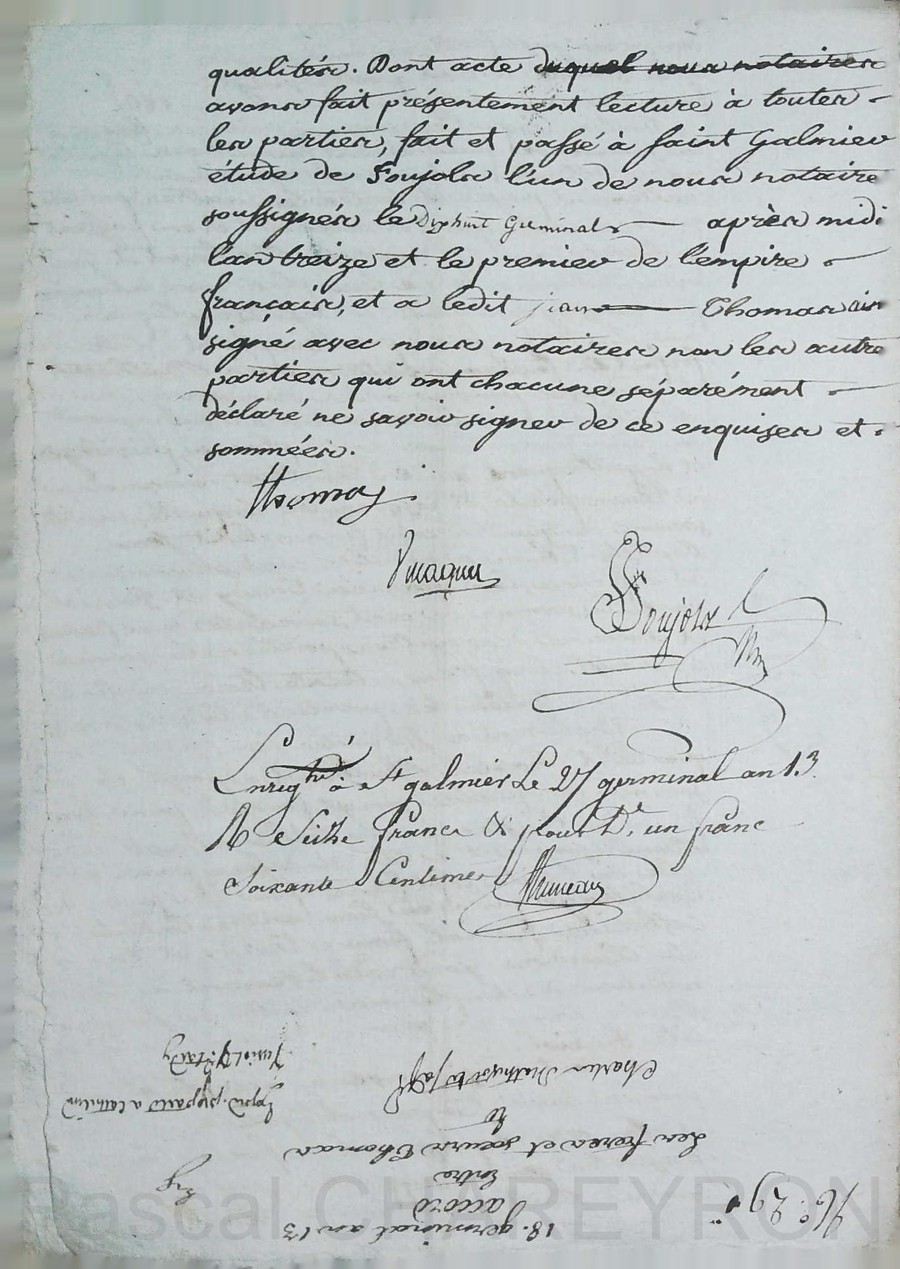 qualités. Dont acte duquel nous notaires
avons fait présentement lecture à toutes
les parties, fait et passé à saint Galmier
étude de Foujols l'un de nous notaire
soussignés le Dixhuit Germinal après midi
l'an treize et le premier de l'empire
français, et a ledit jean Thomas
signé avec nous notaires non les autre
parties qui ont chacune séparément
déclaré ne savoir signer de ce enquises et
sommées.
Thomas
Foujols
Enregtré à St galmier Le 27 germinal an 13.
R Seize francs & pour De. un franc
Soixante Centimes
18. germinal an 13
accord
Entre
Les freres et soeurs Thomas
Charles
No. 29
Pascal CHAREYRON